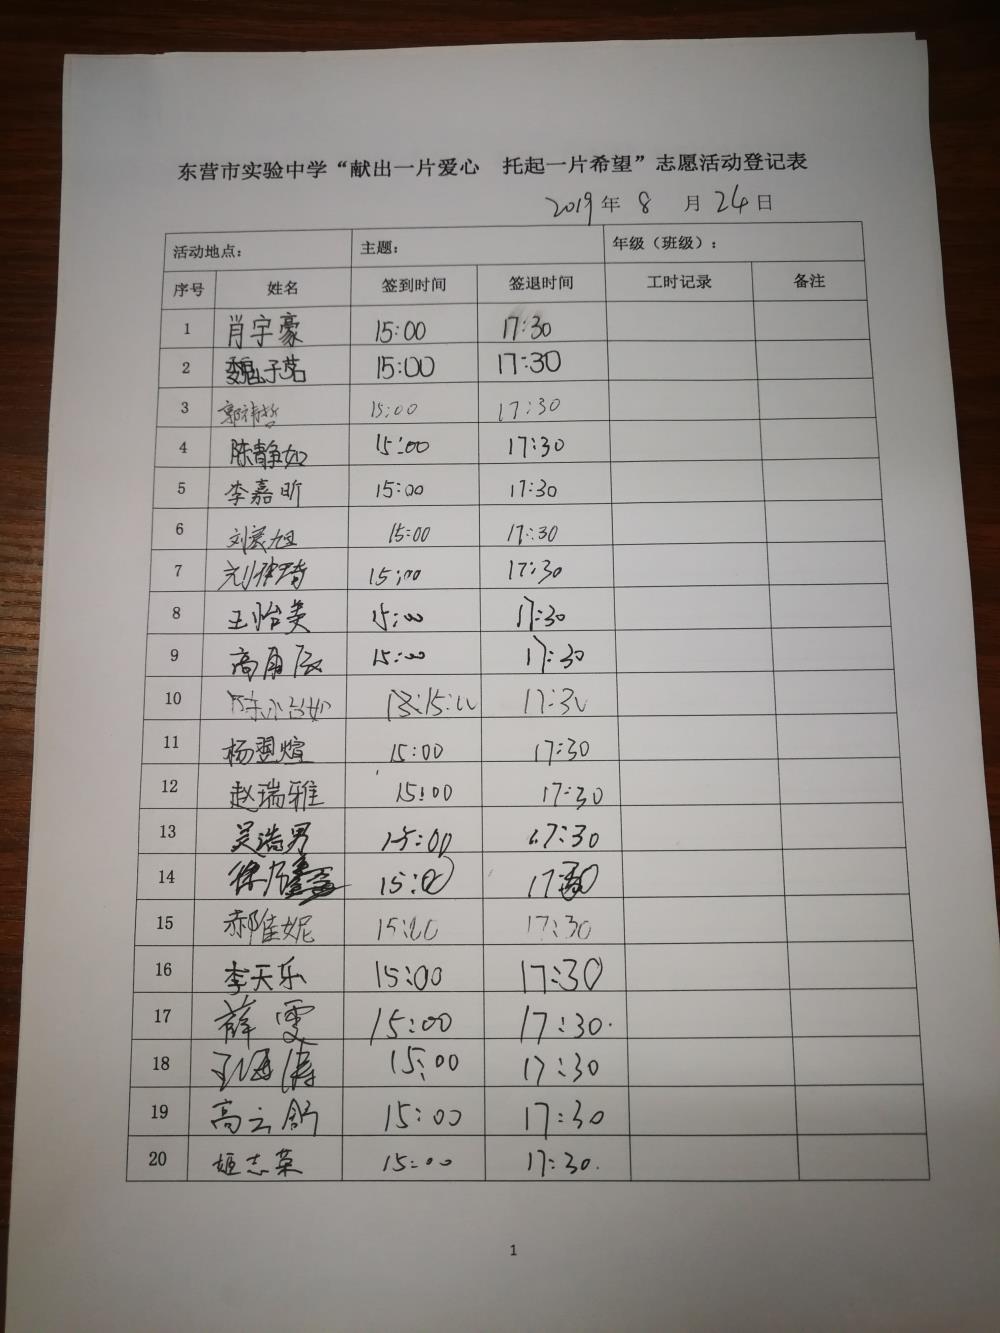 东营市实验中学“献出一片爱心 托起一片希望”志愿活动登记表
2019年 8 月 24日
活动地点: 主题: 年级（班级）:
序号 姓名 签到时间 签退时间 工时记录 备注
1 肖宇豪 15:00 17:30
2 魏子茗 15:00 17:30
3 郭祎哲 15:00 17:30
4 陈静如 15:00 17:30
5 李嘉昕 15:00 17:30
6 15:00 17:30
7 15:00 17:30
8 王怡美 15:00 17:30
9 高雨辰 15:00 17:30
10 17:30
11 杨翌煊 15:00 17:30
12 赵瑞雅 15:00 17:30
13 吴浩男 15:00 17:30
14 15:00 17:30
15 郝佳妮 15:00 17:30
16 李天乐 15:00 17:30
17 薛雯 15:00 17:30.
18 15:00 17:30
19 高云舒 15:00 17:30
20 姬志荣 15:00 17:30.
1